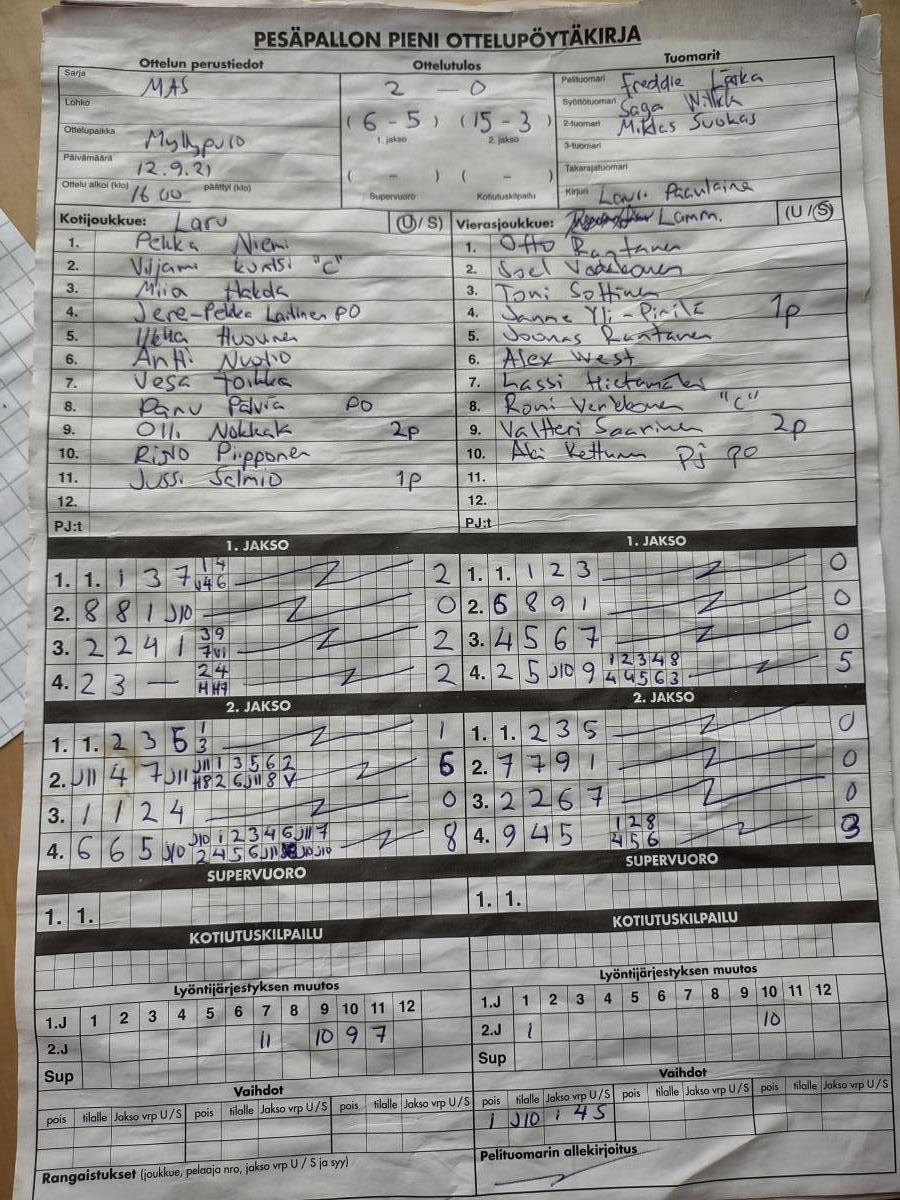 PESÄPALLON PIENI OTTELUPÖYTÄKIRJA
Ottelun perustiedot
Sarja MAS
Lohko
Ottelupaikka Myllypuro
Päivämäärä 12.9.21
Ottelu alkoi (klo) 16 00 päättyi (klo)
Ottelutulos
2 — 0
( 6 - 5 ) ( 15 - 3 )
1. jakso 2. jakso
( - ) ( - )
Supervuoro Kotiutuskilpailu
Tuomarit
Pelituomari Freddie
Syöttötuomari Saga
2-tuomari Miklas Suokas
3-tuomari
Takarajatuomari
Kirjuri
Kotijoukkue: Laru (U / S)
1. Pekka Niemi
2. Viljami "C"
3. Miia
4. Jere-Pekka Laitinen PO
5. Huovinen
6. Antti Nuotio
7. Vesa Toikka
8. Panu PO
9. Olli 2p
10. Piipponen
11. Jussi Salmio 1p
12.
PJ:t
Vierasjoukkue: Lamm. (U / S)
1. Otto Rantanen
2.
3. Toni Sottinen
4. Janne Yli-Pirilä 1p
5. Joonas Rantanen
6. Alex West
7. Lassi
8. Roni "C"
9. Valtteri Saarinen 2p
10. Aki Kettunen pj po
11.
12.
PJ:t
1. JAKSO
1. 1. 1 3 7 2
2. 8 8 1 J10 0
3. 2 2 4 1 2
4. 2 3 — 2
1. JAKSO
1. 1. 1 2 3 0
2. 6 8 9 1 0
3. 4 5 6 7 0
4. 2 5 J10 9 1 2 3 4 8 5
4 4 5 6 3
2. JAKSO
1. 1. 2 3 5 1 1
3
2. J11 4 7 J11 J11 1 3 5 6 2 6
3. 1 1 2 4 0
4. 6 6 5 J10 J10 1 2 3 4 6 J11 7 8
2. JAKSO
1. 1. 2 3 5 0
2. 7 7 9 1 0
3. 2 2 6 7 0
4. 9 4 5 1 2 8 3
4 5 6
SUPERVUORO
1. 1.
SUPERVUORO
1. 1.
KOTIUTUSKILPAILU
KOTIUTUSKILPAILU
Lyöntijärjestyksen muutos
1.J 1 2 3 4 5 6 7 8 9 10 11 12
2.J 11 10 9 7
Sup
Lyöntijärjestyksen muutos
1.J 1 2 3 4 5 6 7 8 9 10 11 12
2.J 1 10
Sup
Vaihdot
pois tilalle Jakso vrp U / S pois tilalle Jakso vrp U / S pois tilalle Jakso vrp U / S
Vaihdot
pois tilalle Jakso vrp U / S pois tilalle Jakso vrp U / S pois tilalle Jakso vrp U / S
1 J10 1 4 S
Rangaistukset (joukkue, pelaaja nro, jakso vrp U / S ja syy)
Pelituomarin allekirjoitus